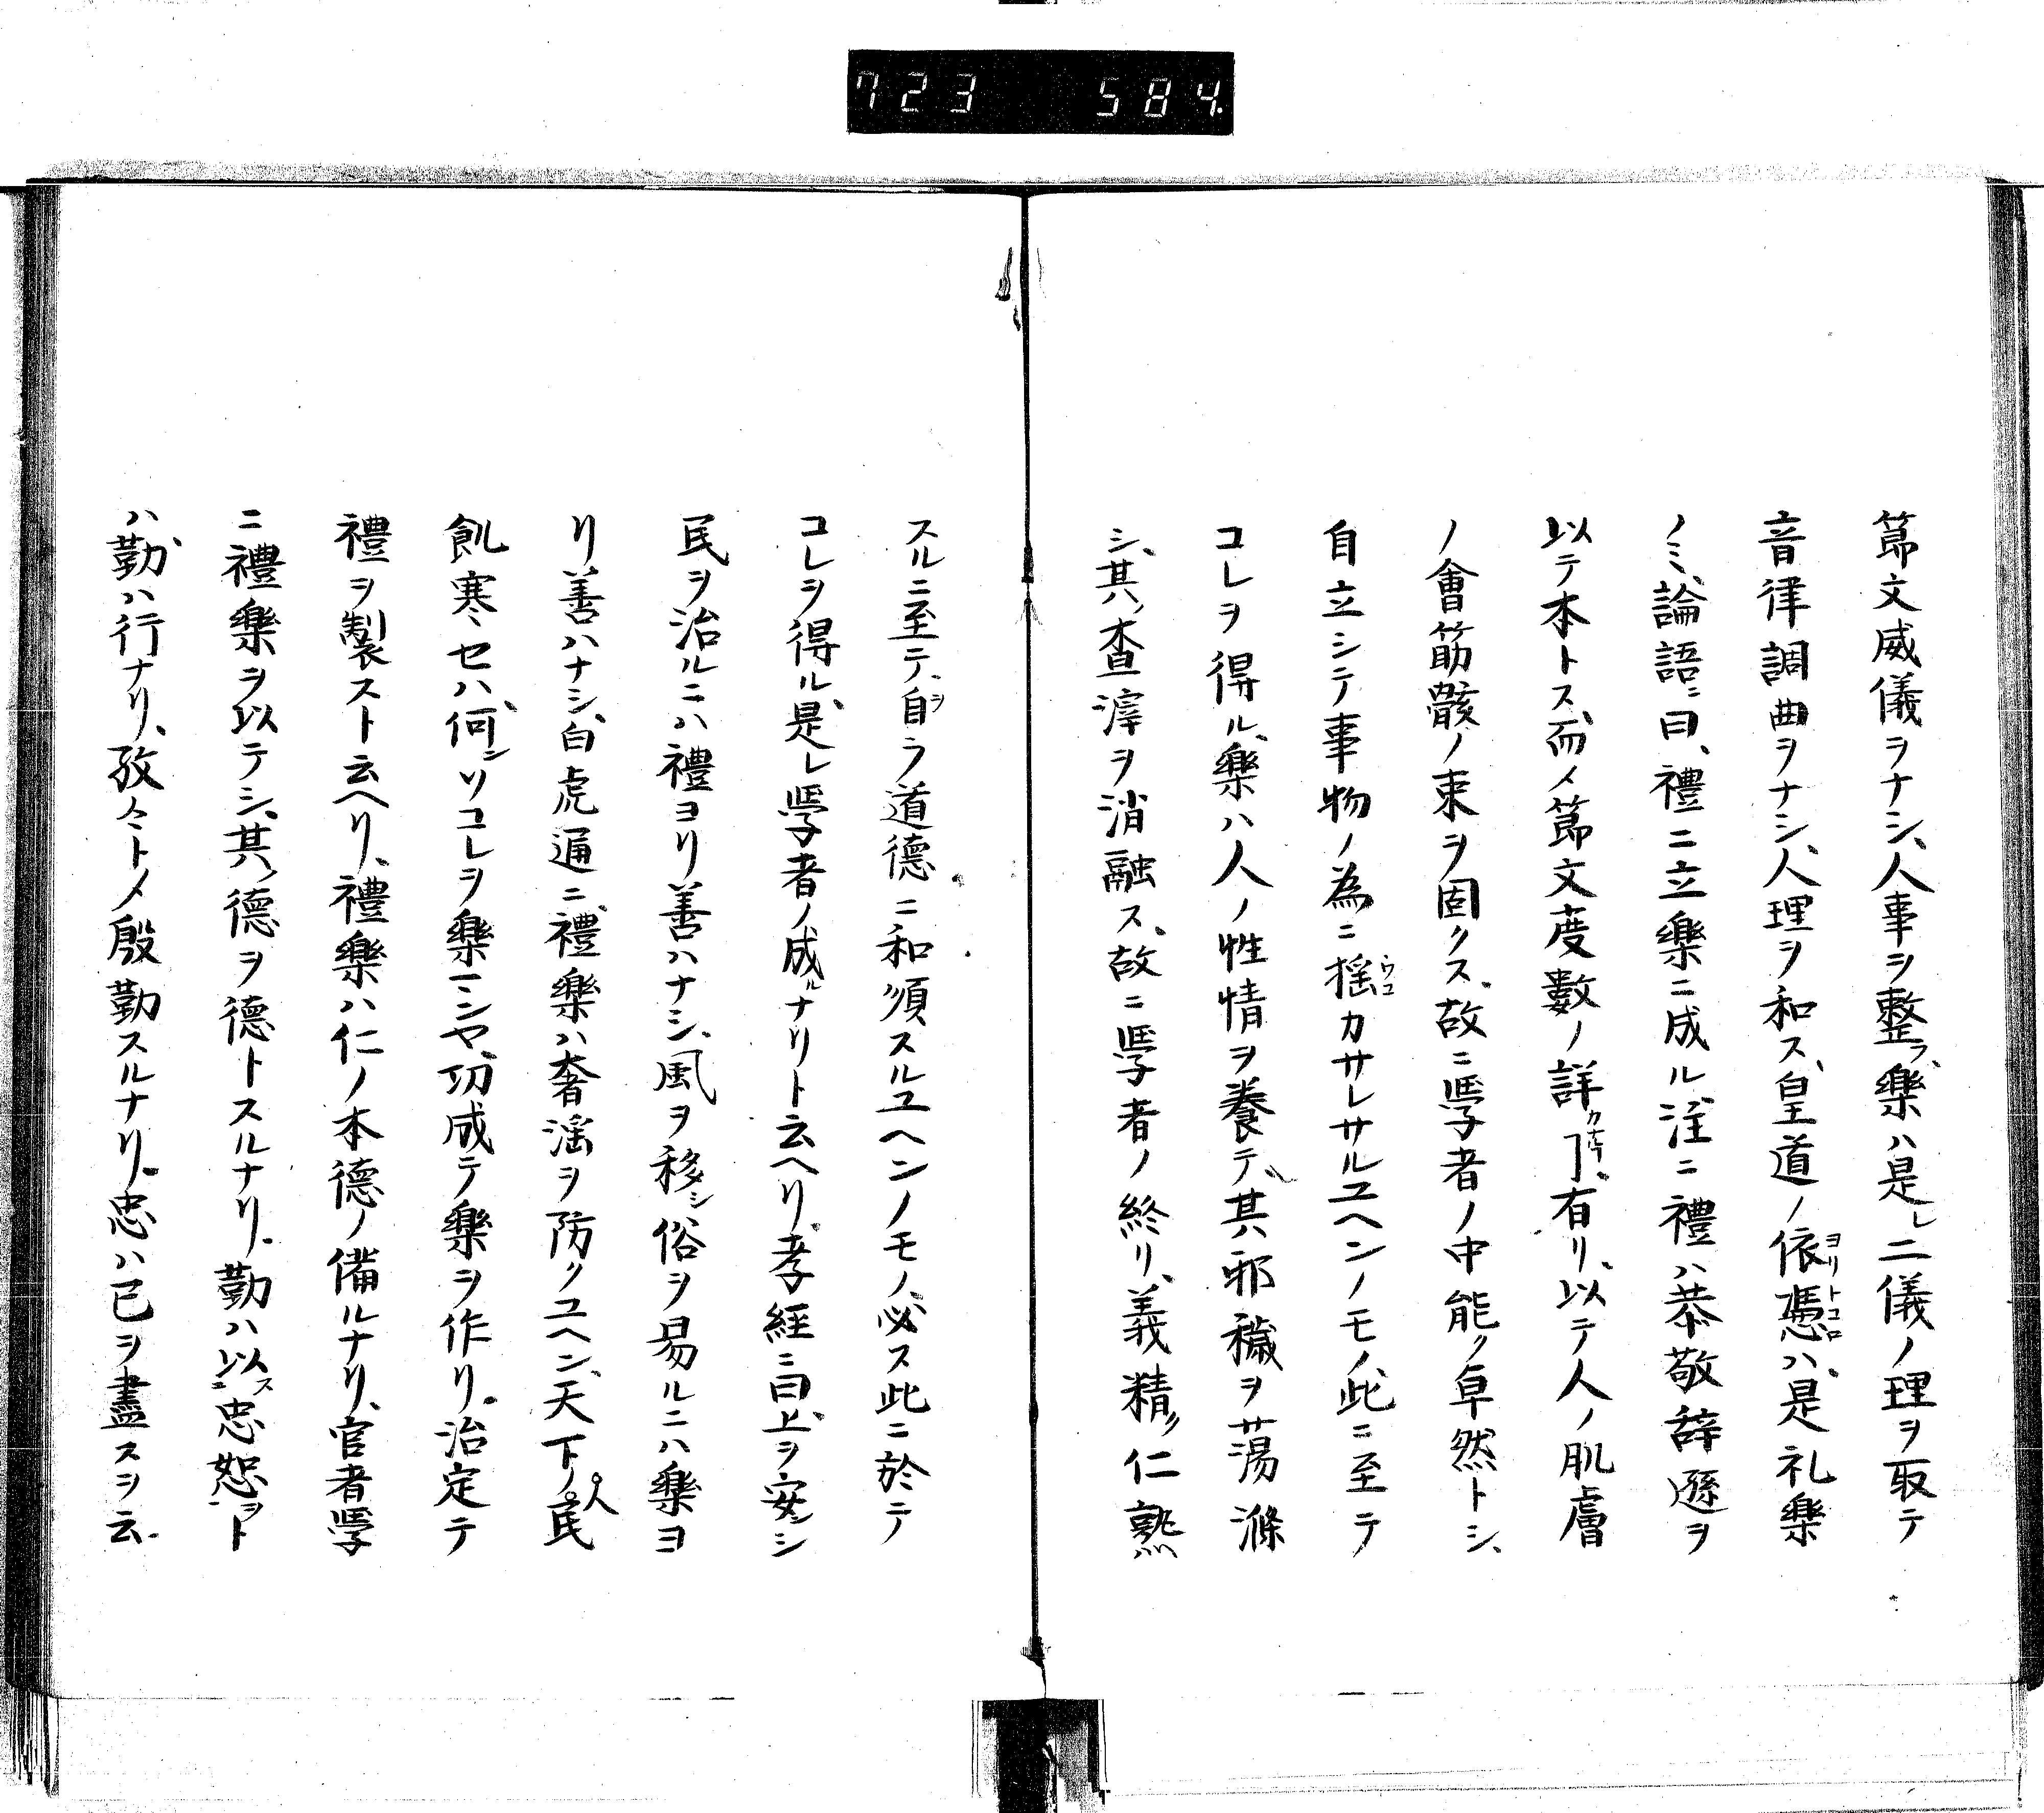 723 584
節文威儀ヲナシ、人事ヲ整フ、樂ハ是レ二儀ノ理ヲ取テ
音律調曲ヲナシ、人理ヲ和ス、皇道ノ依憑ヨリトコロハ、是礼樂
ノミ、論語ニ曰、禮ニ立樂ニ成ル、注ニ禮ハ恭敬辞遜ヲ
以テ本トス、而メ節文度數ノ詳カナルヿ有リ、以テ人ノ肌膚
ノ會筋骸ノ束ヲ固クス、故ニ學者ノ中能ク卓然トシ、
自立シテ事物ノ為ニ揺ウコカサレサルユヘンノモノ、此ニ至テ
コレヲ得ル、樂ハ人ノ性情ヲ養テ、其邪穢ヲ蕩滌
シ、其ノ査滓ヲ消融ス、故ニ學者ノ終リ、義精ク仁熟
スルニ至テ、自ヲラ道德ニ和須スルユヘンノモノ、必ス此ニ於テ
コレヲ得ル、是レ學者ノ成ルナリト云ヘリ、孝經ニ曰、上ヲ安シ
民ヲ治ルニハ禮ヨリ善ハナシ、風ヲ移シ俗ヲ易ルニハ樂ヨ
リ善ハナシ、白虎通ニ、禮樂ハ奢滛ヲ防クユヘン、天下ノ人民
飢寒セハ、何シソコレヲ樂ミンヤ、功成テ樂ヲ作リ、治定テ
禮ヲ製スト云ヘリ、禮樂ハ仁ノ本德ノ備ルナリ、官者學
ニ禮樂ヲ以テシ、其ノ德ヲ德トスルナリ、勤ハ以スニ忠恕ヲト
ハ、勤ハ行ナリ、孜々トメ殷勤スルナリ、忠ハ已ヲ盡スヲ云